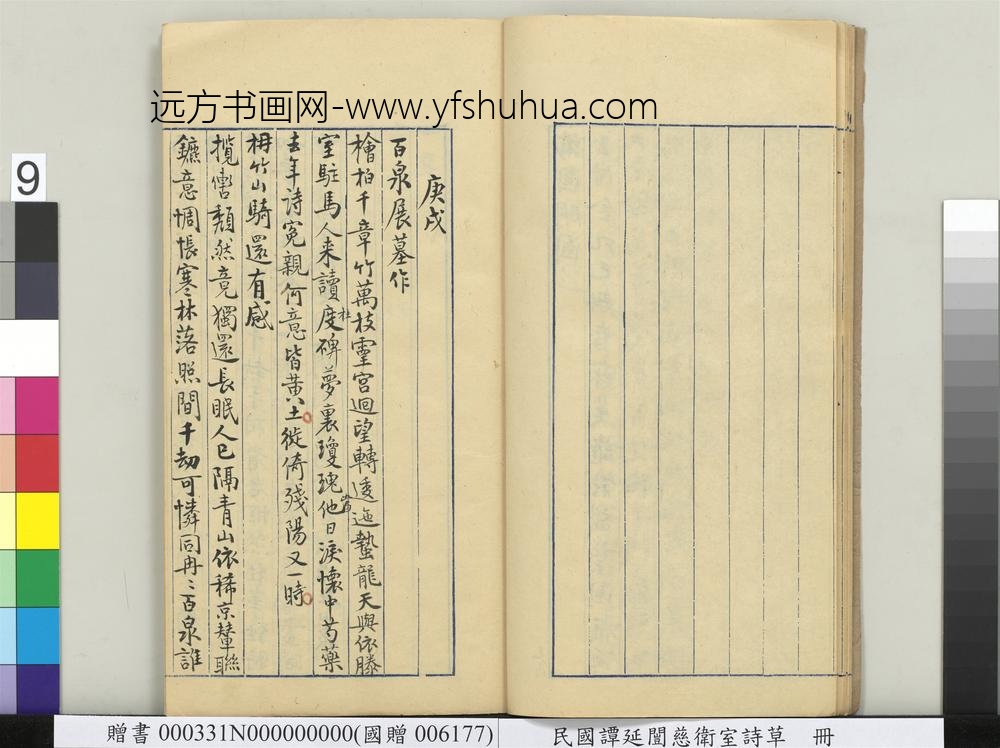 远方书画网-www.yfshuhua.com
9
庚戌
百泉展墓作
檜柏千章竹萬枝靈宮迴望轉逶迤蟄龍天與依滕
室駐馬人来讀度碑夢裏瓊瑰他日淚懷中芍藥
杜
去年詩冤親何意皆黃土徙倚殘陽又一時
枏竹山騎還有感
攬轡頹然竟獨還長眠人已隔青山依稀京輦聯
鑣意惆悵寒林落照間千劫可憐同冉〻百泉誰
贈書 000331N000000000(國贈 006177)
民國譚延闓慈衛室詩草 冊